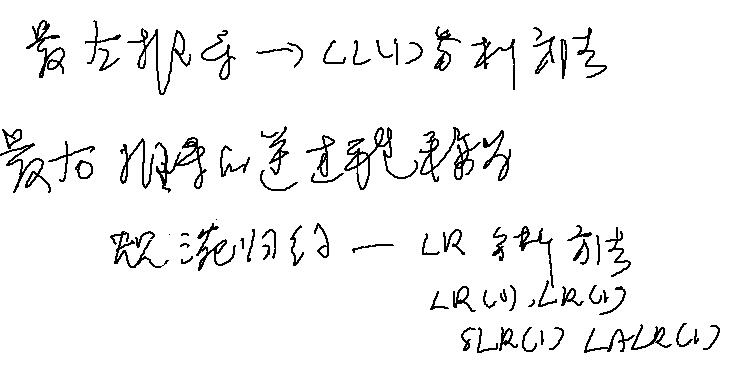 最左推导→LL(1)分析方法
最右推导的逆过程称为
规范归约—LR分析方法
LR(0),LR(1)
SLR(1) LALR(1)